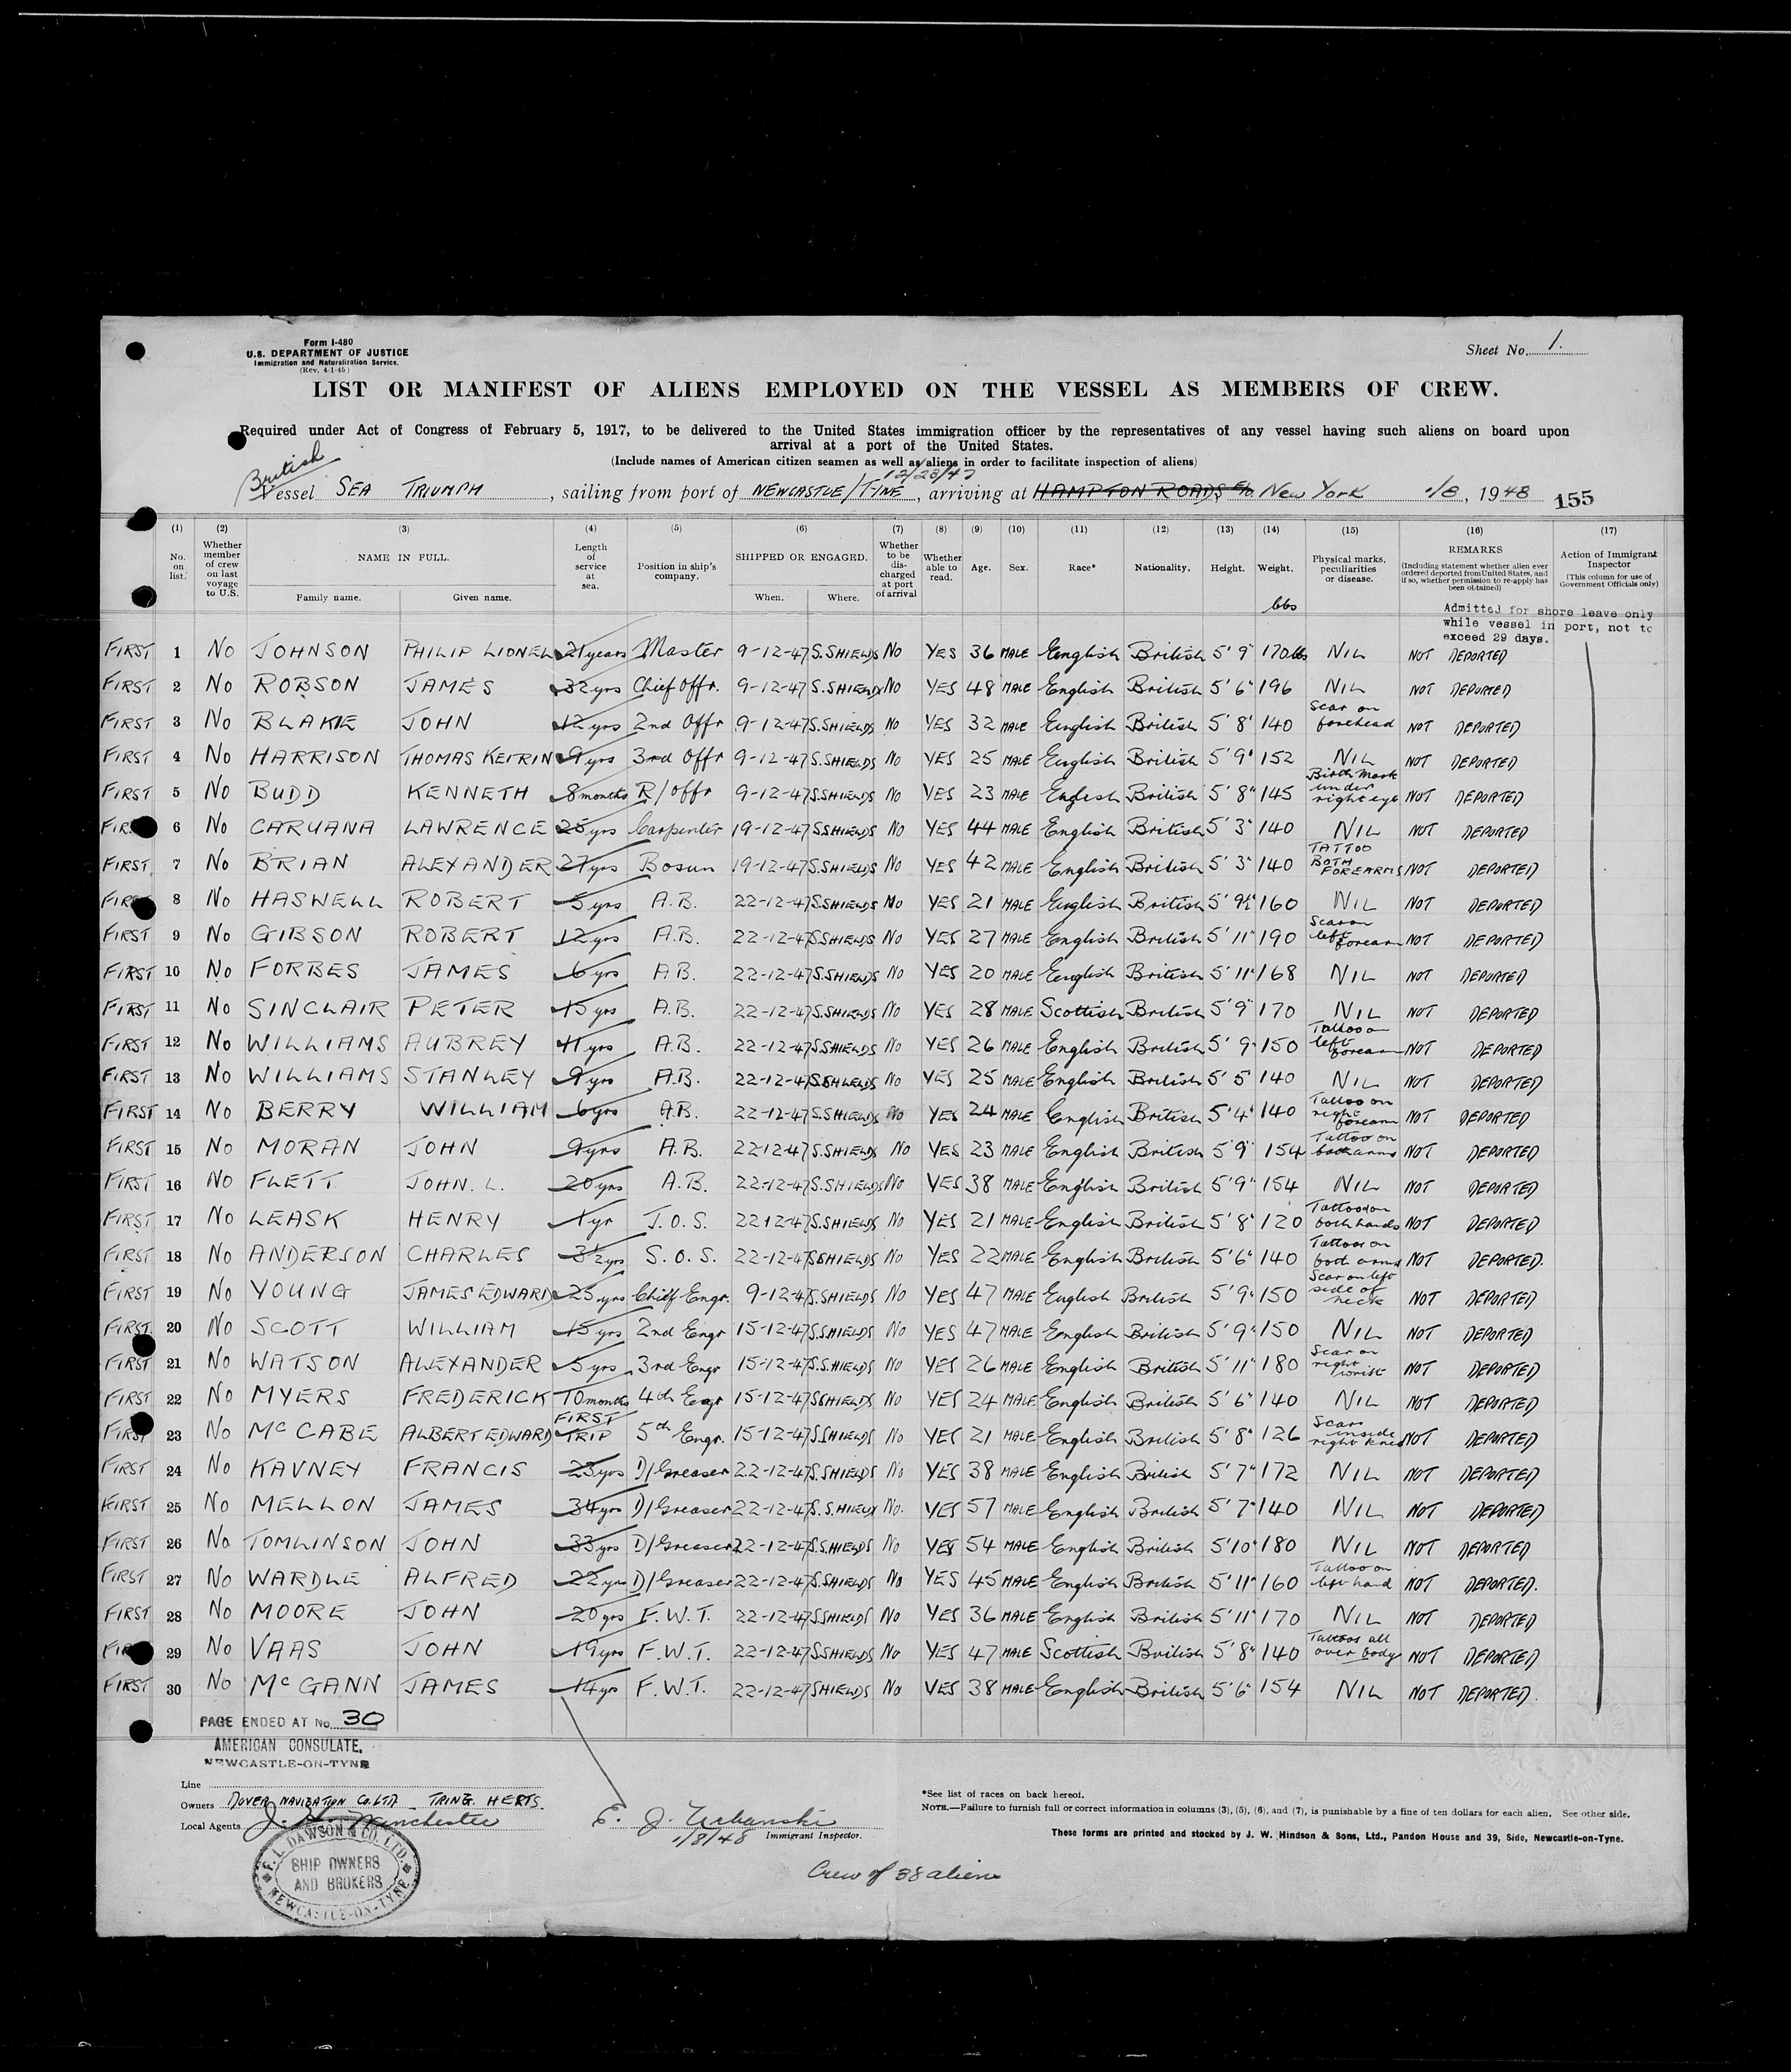 Form I-480
U.S. DEPARTMENT OF JUSTICE
Immigration and Naturalization Service.
(Rev. 4-1-45)
Sheet No. 1.
LIST OR MANIFEST OF ALIENS EMPLOYED ON THE VESSEL AS MEMBERS OF CREW.
Required under Act of Congress of February 5, 1917, to be delivered to the United States immigration officer by the representatives of any vessel having such aliens on board upon
arrival at a port of the United States.
(Include names of American citizen seamen as well as aliens in order to facilitate inspection of aliens)
British
12/23/47
Vessel SEA TRIUMPH, sailing from port of NEWCASTLE/TYNE, arriving at HAMPTON ROADS New York 1/8, 1948 155
(1) (2) (3) (4) (5) (6) (7) (8) (9) (10) (11) (12) (13) (14) (15) (16) (17)
No. on list. Whether member of crew on last voyage to U.S. NAME IN FULL. Family name. Given name. Length of service at sea. Position in ship's company. SHIPPED OR ENGAGED. When. Where. Whether to be discharged at port of arrival Whether able to read. Age. Sex. Race* Nationality. Height. Weight. Physical marks, peculiarities or disease. REMARKS (Including statement whether alien ever ordered deported from United States, and if so, whether permission to re-apply has been obtained) Action of Immigrant Inspector (This column for use of Government Officials only)
lbs
Admitted for shore leave only
while vessel in port, not to
exceed 29 days.
FIRST 1 No JOHNSON PHILIP LIONEL 21 years Master 9-12-47 S.SHIELDS No YES 36 MALE English British 5'9" 170 lbs NIL NOT DEPORTED
FIRST 2 No ROBSON JAMES 32 yrs Chief Offr. 9-12-47 S.SHIELDS No YES 48 MALE English British 5'6" 196 NIL NOT DEPORTED
FIRST 3 No BLAKE JOHN 12 yrs 2nd Offr 9-12-47 S.SHIELDS No YES 32 MALE English British 5'8" 140 Scar on forehead NOT DEPORTED
FIRST 4 No HARRISON THOMAS 9 yrs 3rd Offr 9-12-47 S.SHIELDS No YES 25 MALE English British 5'9" 152 NIL NOT DEPORTED
FIRST 5 No BUDD KENNETH 8 months R/Offr 9-12-47 S.SHIELDS No YES 23 MALE English British 5'8" 145 Birth Mark under right eye NOT DEPORTED
FIRST 6 No CARUANA LAWRENCE 25 yrs Carpenter 19-12-47 S.SHIELDS No YES 44 MALE English British 5'3" 140 NIL NOT DEPORTED
FIRST 7 No BRIAN ALEXANDER 27 yrs Bosun 19-12-47 S.SHIELDS No YES 42 MALE English British 5'3" 140 TATTOO BOTH FOREARMS NOT DEPORTED
FIRST 8 No HASWELL ROBERT 5 yrs A.B. 22-12-47 S.SHIELDS No YES 21 MALE English British 5'9½" 160 NIL NOT DEPORTED
FIRST 9 No GIBSON ROBERT 12 yrs A.B. 22-12-47 S.SHIELDS No YES 27 MALE English British 5'11" 190 Scar on left forearm NOT DEPORTED
FIRST 10 No FORBES JAMES 6 yrs A.B. 22-12-47 S.SHIELDS No YES 20 MALE English British 5'11" 168 NIL NOT DEPORTED
FIRST 11 No SINCLAIR PETER 15 yrs A.B. 22-12-47 S.SHIELDS No YES 28 MALE Scottish British 5'9" 170 NIL NOT DEPORTED
FIRST 12 No WILLIAMS AUBREY 11 yrs A.B. 22-12-47 S.SHIELDS No YES 26 MALE English British 5'9" 150 Tattoo on left forearm NOT DEPORTED
FIRST 13 No WILLIAMS STANLEY 9 yrs A.B. 22-12-47 S.SHIELDS No YES 25 MALE English British 5'5" 140 NIL NOT DEPORTED
FIRST 14 No BERRY WILLIAM 6 yrs A.B. 22-12-47 S.SHIELDS No YES 24 MALE English British 5'4" 140 Tattoo on right forearm NOT DEPORTED
FIRST 15 No MORAN JOHN 9 yrs A.B. 22-12-47 S.SHIELDS No YES 23 MALE English British 5'9" 154 Tattoo on both arms NOT DEPORTED
FIRST 16 No FLETT JOHN. L. 20 yrs A.B. 22-12-47 S.SHIELDS No YES 38 MALE English British 5'9" 154 NIL NOT DEPORTED
FIRST 17 No LEASK HENRY 1 yr J.O.S. 22-12-47 S.SHIELDS No YES 21 MALE English British 5'8" 120 Tattoo on both hands NOT DEPORTED
FIRST 18 No ANDERSON CHARLES 3½ yrs S.O.S. 22-12-47 S.SHIELDS No YES 22 MALE English British 5'6" 140 Tattoos on both arms NOT DEPORTED.
FIRST 19 No YOUNG JAMES EDWARD 25 yrs Chief Engr. 9-12-47 S.SHIELDS No YES 47 MALE English British 5'9" 150 Scar on left side of neck NOT DEPORTED
FIRST 20 No SCOTT WILLIAM 15 yrs 2nd Engr 15-12-47 S.SHIELDS No YES 47 MALE English British 5'9" 150 NIL NOT DEPORTED
FIRST 21 No WATSON ALEXANDER 5 yrs 3rd Engr 15-12-47 S.SHIELDS No YES 26 MALE English British 5'11" 180 Scar on right wrist NOT DEPORTED
FIRST 22 No MYERS FREDERICK 10 months 4th Engr 15-12-47 S.SHIELDS No YES 24 MALE English British 5'6" 140 NIL NOT DEPORTED
FIRST 23 No McCABE ALBERT EDWARD FIRST TRIP 5th Engr. 15-12-47 S.SHIELDS No YES 21 MALE English British 5'8" 126 Scar inside right knee NOT DEPORTED
FIRST 24 No KAVNEY FRANCIS 23 yrs D/Greaser 22-12-47 S.SHIELDS No YES 38 MALE English British 5'7" 172 NIL NOT DEPORTED
FIRST 25 No MELLON JAMES 34 yrs D/Greaser 22-12-47 S.SHIELDS No. YES 57 MALE English British 5'7" 140 NIL NOT DEPORTED
FIRST 26 No TOMLINSON JOHN 33 yrs D/Greaser 22-12-47 S.SHIELDS No YES 54 MALE English British 5'10" 180 NIL NOT DEPORTED
FIRST 27 No WARDLE ALFRED 22 yrs D/Greaser 22-12-47 S.SHIELDS No YES 45 MALE English British 5'11" 160 Tattoo on left hand NOT DEPORTED.
FIRST 28 No MOORE JOHN 20 yrs F.W.T. 22-12-47 S.SHIELDS No YES 36 MALE English British 5'11" 170 NIL NOT DEPORTED
FIRST 29 No VAAS JOHN 19 yrs F.W.T. 22-12-47 S.SHIELDS No YES 47 MALE Scottish British 5'8" 140 Tattoos all over body NOT DEPORTED
FIRST 30 No McGANN JAMES 14 yr F.W.T. 22-12-47 SHIELDS No YES 38 MALE English British 5'6" 154 NIL NOT DEPORTED.
PAGE ENDED AT No. 30
AMERICAN CONSULATE,
NEWCASTLE-ON-TYNE
Line
Owners DOVER NAVIGATION CO. LTD. TRING. HERTS.
Local Agents Winchester
F. L. DAWSON & CO. LTD.
SHIP OWNERS
AND BROKERS
NEWCASTLE-ON-TYNE
E. J. Urbanski
1/8/48 Immigrant Inspector.
Crew of 38 aliens
*See list of races on back hereof.
NOTE.—Failure to furnish full or correct information in columns (3), (5), (6), and (7), is punishable by a fine of ten dollars for each alien. See other side.
These forms are printed and stocked by J. W. Hindson & Sons, Ltd., Pandon House and 39, Side, Newcastle-on-Tyne.